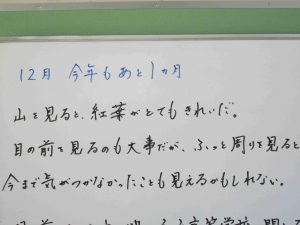 12月 今年もあと1ヵ月
山を見ると、紅葉がとてもきれいだ。
目の前を見るのも大事だが、ふっと周りを見ると
今まで気がつかなかったことも見えるかもしれない。